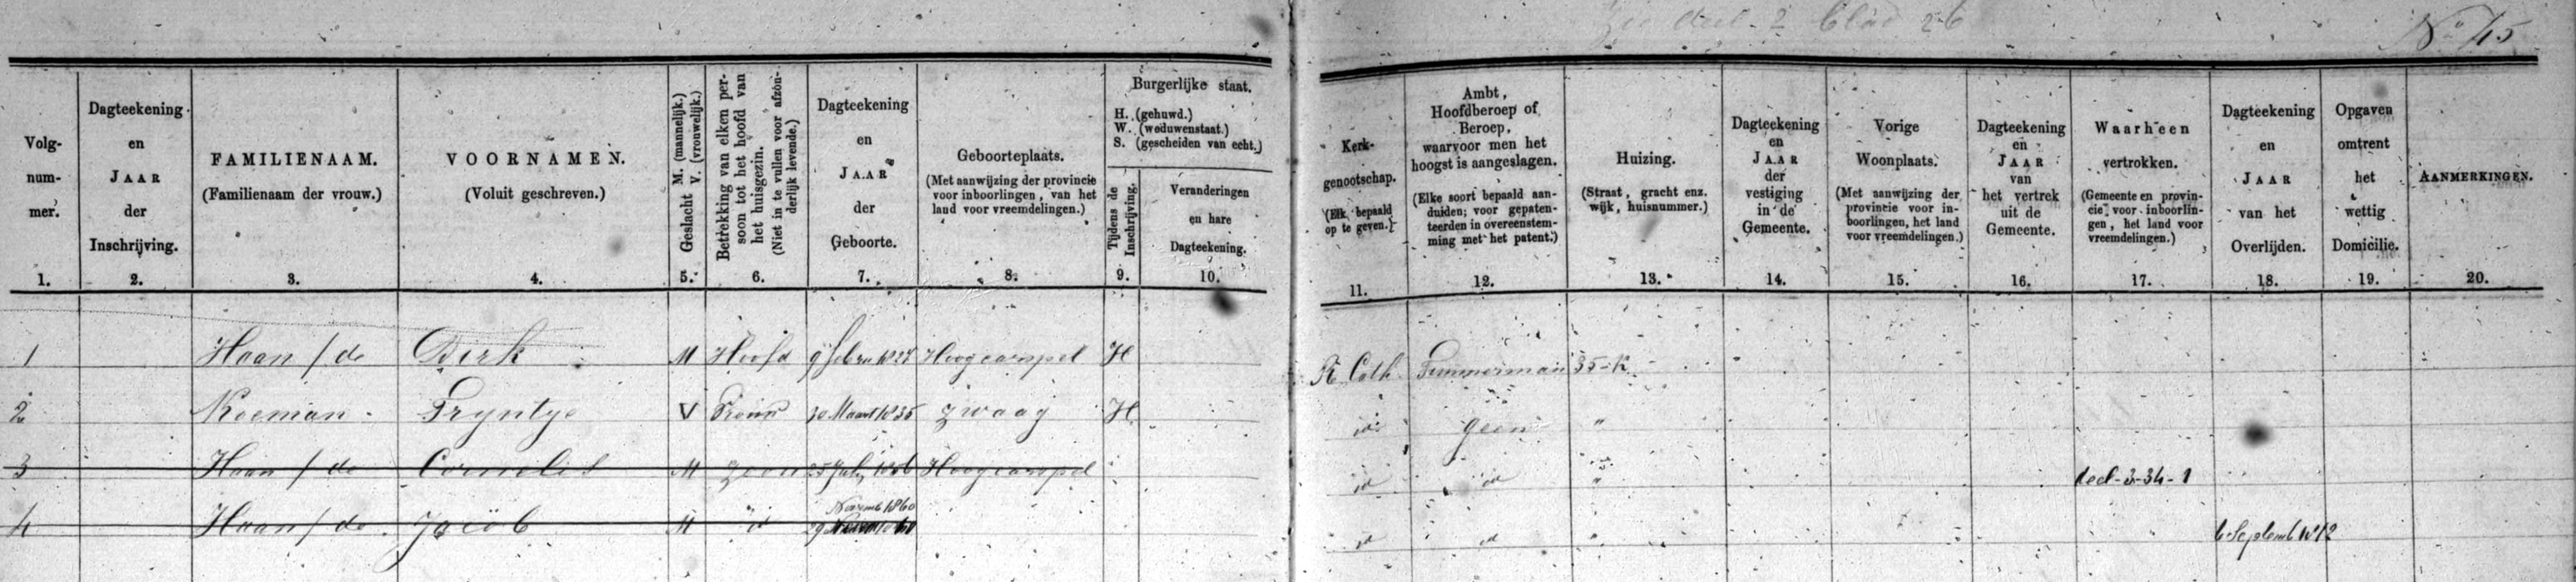 Zie deel 2 blad 26
No 45
Volg-
num-
mer.
1.
Dagteekening
en
JAAR
der
Inschrijving.
2.
FAMILIENAAM.
(Familienaam der vrouw.)
3.
VOORNAMEN.
(Voluit geschreven.)
4.
Geslacht M. (mannelijk.)
V. (vrouwelijk.)
5.
Betrekking van elken per-
soon tot het hoofd van
het huisgezin.
(Niet in te vullen voor afzon-
derlijk levende.)
6.
Dagteekening
en
JAAR
der
Geboorte.
7.
Geboorteplaats.
(Met aanwijzing der provincie
voor inboorlingen, van het
land voor vreemdelingen.)
8.
Burgerlijke staat.
H. (gehuwd.)
W. (weduwenstaat.)
S. (gescheiden van echt.)
Tijdens de
Inschrijving.
9.
Veranderingen
en hare
Dagteekening.
10.
Kerk-
genootschap.
(Elk bepaald
op te geven.)
11.
Ambt,
Hoofdberoep of
Beroep,
waarvoor men het
hoogst is aangeslagen.
(Elke soort bepaald aan-
duiden; voor gepaten-
teerden in overeenstem-
ming met het patent.)
12.
Huizing.
(Straat, gracht enz.
wijk, huisnummer.)
13.
Dagteekening
en
JAAR
der
vestiging
in de
Gemeente.
14.
Vorige
Woonplaats.
(Met aanwijzing der
provincie voor in-
boorlingen, het land
voor vreemdelingen.)
15.
Dagteekening
en
JAAR
van
het vertrek
uit de
Gemeente.
16.
Waarheen
vertrokken.
(Gemeente en provin-
cie voor inboorlin-
gen, het land voor
vreemdelingen.)
17.
Dagteekening
en
JAAR
van het
Overlijden.
18.
Opgaven
omtrent
het
wettig
Domicilie.
19.
AANMERKINGEN.
20.
1 Haan / de Dirk M Hoofd 9 febru 1827 Hoogcarspel H R Cath Timmerman 35-K
2 Koeman Tryntje V Vrouw 30 Maart 1835 Zwaag H id geen "
3 Haan / de Cornelis M zoon 25 July Hoogcarspel id id " deel-3-34-1
Novemb 1860
4 Haan / de Jacob M id 29 id id " 6 Septemb